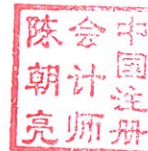 中国注册
会计师
陈朝亮